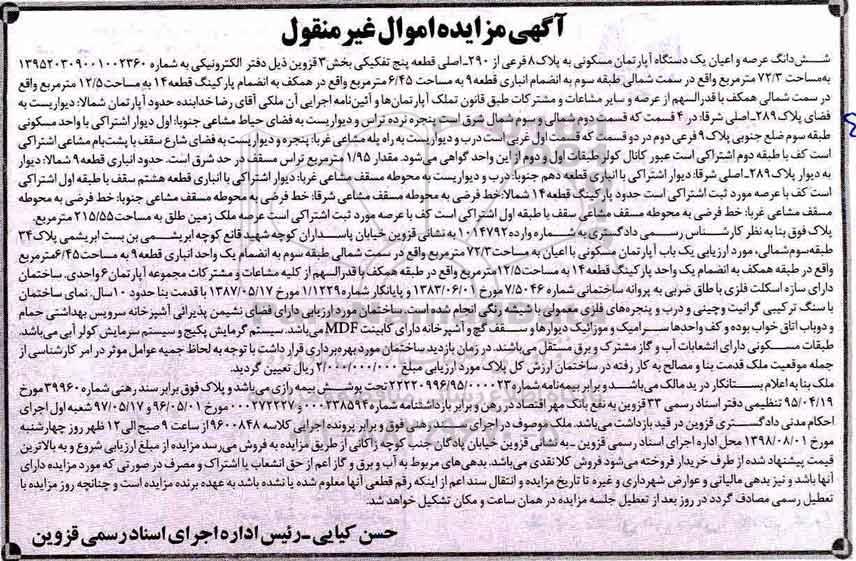 آگهی مزایده اموال غیر منقول
شش‌دانگ عرصه و اعیان یک دستگاه آپارتمان مسکونی به پلاک ۸ فرعی از ۲۹۰ـ اصلی قطعه پنج تفکیکی بخش ۳ قزوین ذیل دفتر الکترونیکی به شماره ۱۳۹۵۲۰۳۰۹۰۰۱۰۰۲۳۶۰
به‌مساحت ۷۲/۳ مترمربع واقع در سمت شمالی طبقه سوم به انضمام انباری قطعه ۹ به مساحت ۶/۴۵ مترمربع واقع در همکف به انضمام پارکینگ قطعه ۱۴ به مساحت ۱۲/۵ مترمربع واقع
در سمت شمالی همکف با قدرالسهم از عرصه و سایر مشاعات و مشترکات طبق قانون تملک آپارتمان‌ها و آئین‌نامه اجرایی آن ملکی آقای رضا خدابنده حدود آپارتمان شمالا: دیواریست به
فضای پلاک ۲۸۹ـ اصلی شرقا: در ۴ قسمت که قسمت دوم شمالی و سوم شمال شرق است پنجره نرده تراس و دیواریست به فضای حیاط مشاعی جنوبا: اول دیوار اشتراکی با واحد مسکونی
طبقه سوم ضلع جنوبی پلاک ۹ فرعی دوم در دو قسمت که قسمت اول غربی است درب و دیواریست به راه پله مشاعی غربا: پنجره و دیواریست به فضای شارع سقف با پشت‌بام مشاعی اشتراکی
است کف با طبقه دوم اشتراکی است عبور کانال کولر طبقات اول و دوم از این واحد گواهی می‌شود. مقدار ۱/۹۵ مترمربع تراس مسقف در حد شرق است. حدود انباری قطعه ۹ شمالا: دیوار
به دیوار پلاک ۲۸۹ـ اصلی شرقا: دیوار اشتراکی با انباری قطعه دهم جنوبا: درب و دیواریست به محوطه مسقف مشاعی غربا: دیوار اشتراکی با انباری قطعه هشتم سقف با طبقه اول اشتراکی
است کف با عرصه مورد ثبت اشتراکی است حدود پارکینگ قطعه ۱۴ شمالا: خط فرضی به محوطه مسقف مشاعی شرقا: خط فرضی به محوطه مسقف مشاعی جنوبا: خط فرضی به محوطه
مسقف مشاعی غربا: خط فرضی به محوطه مسقف مشاعی سقف با طبقه اول اشتراکی است کف با عرصه مورد ثبت اشتراکی است عرصه ملک زمین طلق به مساحت ۲۱۵/۵۵ مترمربع.
پلاک فوق بنا به نظر کارشناس رسمی دادگستری به شماره وارده ۱۰۱۴۷۹۲ به نشانی قزوین خیابان پاسداران کوچه شهید قانع کوچه ابریشمی بن بست ابریشمی پلاک ۳۴
طبقه سوم شمالی، مورد ارزیابی یک باب آپارتمان مسکونی با اعیان به مساحت ۷۲/۳ مترمربع واقع در سمت شمالی طبقه سوم به انضمام یک واحد انباری قطعه ۹ به مساحت ۶/۴۵ مترمربع
واقع در طبقه همکف به انضمام یک واحد پارکینگ قطعه ۱۴ به مساحت ۱۲/۵ مترمربع واقع در طبقه همکف با قدرالسهم از کلیه مشاعات و مشترکات مجموعه آپارتمان ۶ واحدی. ساختمان
دارای سازه اسکلت فلزی با طاق ضربی به پروانه ساختمانی شماره ۷/۵۰۴۶ مورخ ۱۳۸۳/۰۶/۰۱ و پایانکار شماره ۱/۱۲۲۹ مورخ ۱۳۸۷/۰۵/۱۷ با قدمت بنا حدود ۱۰ سال. نمای ساختمان
با سنگ ترکیبی گرانیت وچینی و درب و پنجره‌های فلزی معمولی با شیشه رنگی انجام شده است. ساختمان مورد ارزیابی دارای فضای نشیمن پذیرائی آشپزخانه سرویس بهداشتی حمام
و دوباب اتاق خواب بوده و کف واحدها سرامیک و موزائیک دیوارها و سقف گچ و آشپزخانه دارای کابینت MDF می‌باشد. سیستم گرمایش پکیج و سیستم سرمایش کولر آبی می‌باشد.
طبقات مسکونی دارای انشعابات آب و گاز مشترک و برق مستقل می‌باشند. در زمان بازدید ساختمان مورد بهره‌برداری قرار داشت با توجه به لحاظ جمیه عوامل موثر در امر کارشناسی از
جمله موقعیت ملک قدمت بنا و مصالح به کار رفته در ساختمان ارزش کل پلاک مورد ارزیابی مبلغ ۲/۰۰۰/۰۰۰/۰۰۰ ریال تعیین گردید.
ملک بنا به اعلام بستانکار در ید مالک می‌باشد و برابر بیمه‌نامه شماره ۲۲۲۲۰۹۹۶/۹۵/۰۰۰۰۲۳ تحت پوشش بیمه رازی می‌باشد و پلاک فوق برابر سند رهنی شماره ۳۹۹۶۰ مورخ
۹۵/۰۴/۱۹ تنظیمی دفتر اسناد رسمی ۳۳ قزوین به نفع بانک مهر اقتصاد در رهن و برابر بازداشتنامه شماره ۰۰۰۲۳۸۵۹۴ مورخ ۹۶/۰۵/۰۱ و ۰۰۰۲۷۲۲۲۷ مورخ ۹۷/۰۵/۱۷ شعبه اول اجرای
احکام مدنی دادگستری قزوین در قید بازداشت می‌باشد. ملک موصوف در اجرای سند رهنی فوق و برابر پرونده اجرایی کلاسه ۹۶۰۰۸۴۸ از ساعت ۹ صبح الی ۱۲ ظهر روز چهارشنبه
مورخ ۱۳۹۸/۰۸/۰۱ محل اداره اجرای اسناد رسمی قزوین ـ به نشانی قزوین خیابان پادگان جنب کوچه زاکانی از طریق مزایده به فروش می‌رسد مزایده از مبلغ ارزیابی شروع و به بالاترین
قیمت پیشنهاد شده از طرف خریدار فروخته می‌شود فروش کلا نقدی می‌باشد. بدهی‌های مربوط به آب و برق و گاز اعم از حق انشعاب یا اشتراک و مصرف در صورتی که مورد مزایده دارای
آنها باشد و نیز بدهی مالیاتی و عوارض شهرداری و غیره تا تاریخ مزایده و انتقال سند اعم از اینکه رقم قطعی آنها معلوم شده یا نشده باشد به عهده برنده مزایده است و چنانچه روز مزایده با
تعطیل رسمی مصادف گردد در روز بعد از تعطیل جلسه مزایده در همان ساعت و مکان تشکیل خواهد شد.
حسن کیایی ـ رئیس اداره اجرای اسناد رسمی قزوین